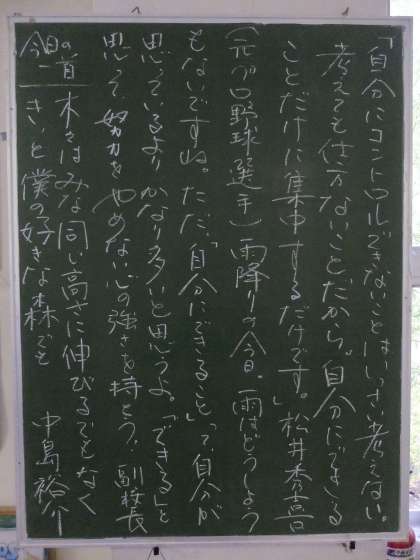 「自分にコントロールできないことは、いっさい考えない。
考えても仕方ないことだから。自分にできる
ことだけに集中するだけです。」松井秀喜
(元プロ野球選手)雨降りの今日。雨はどうしよう
もないですね。ただ、「自分にできること」って、自分が
思っているよりかなり多いと思うよ。「できる」と
思って、努力をやめない心の強さを持とう。副校長
今日の一首 木々はみな同じ高さに伸びるでなく
きいと僕の好きな森でと 中島裕介